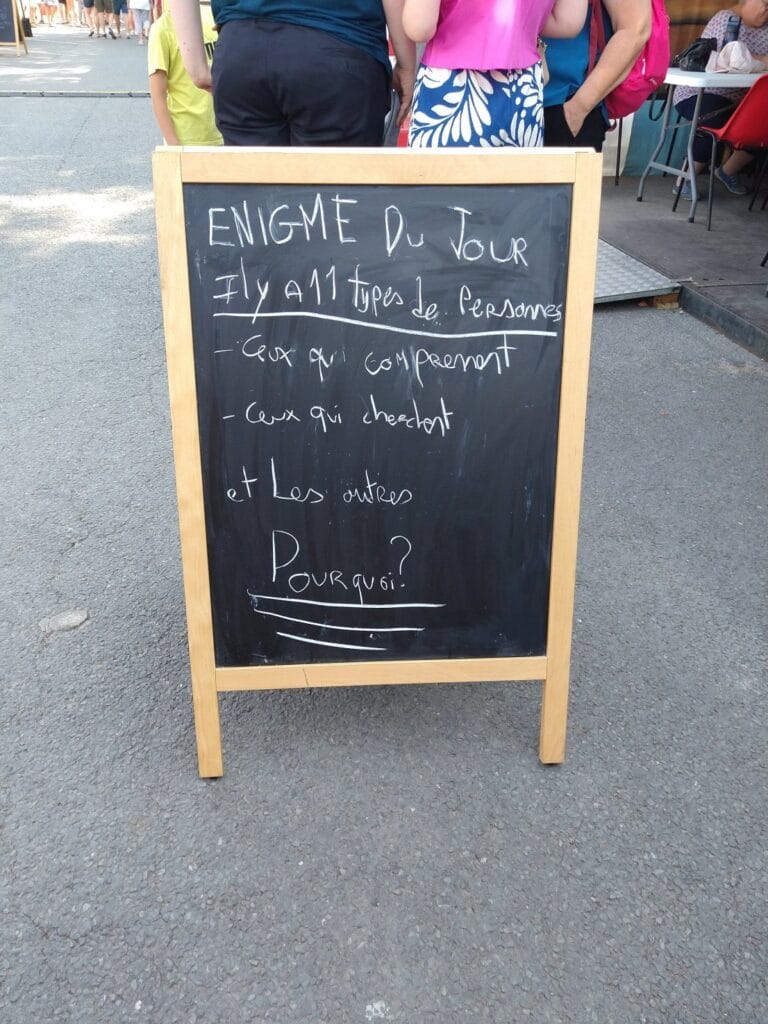 ENIGME DU JOUR
Il y A 11 types de Personnes
- Ceux qui comprennent
- Ceux qui cherchent
et Les autres
POURQUOI?